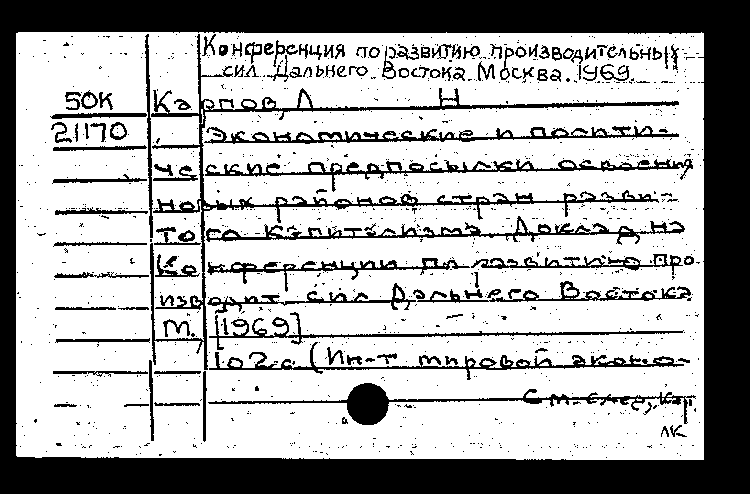 Конференция по развитию производительных
сил Дальнего Востока. Москва. 1969.
50К Карпов, Л Н
21170 Экономические и полити-
ческие предпосылки освоения
новых районов стран разви-
того капитализма. Доклад на
Конференции по развитию про
изводит. сил Дальнего Востока
М. [1969]
102 с (Ин-т мировой эконо-
См. след. кар.
ЛК